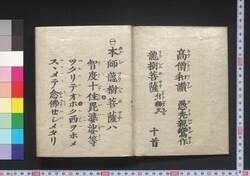 高僧和讃 愚禿親鸞作
龍樹菩薩 十首
本師龍樹菩薩ハ
智度十住毘婆娑等
ツクリテオホク西ヲホメ
スヽメテ念佛セシメタリ